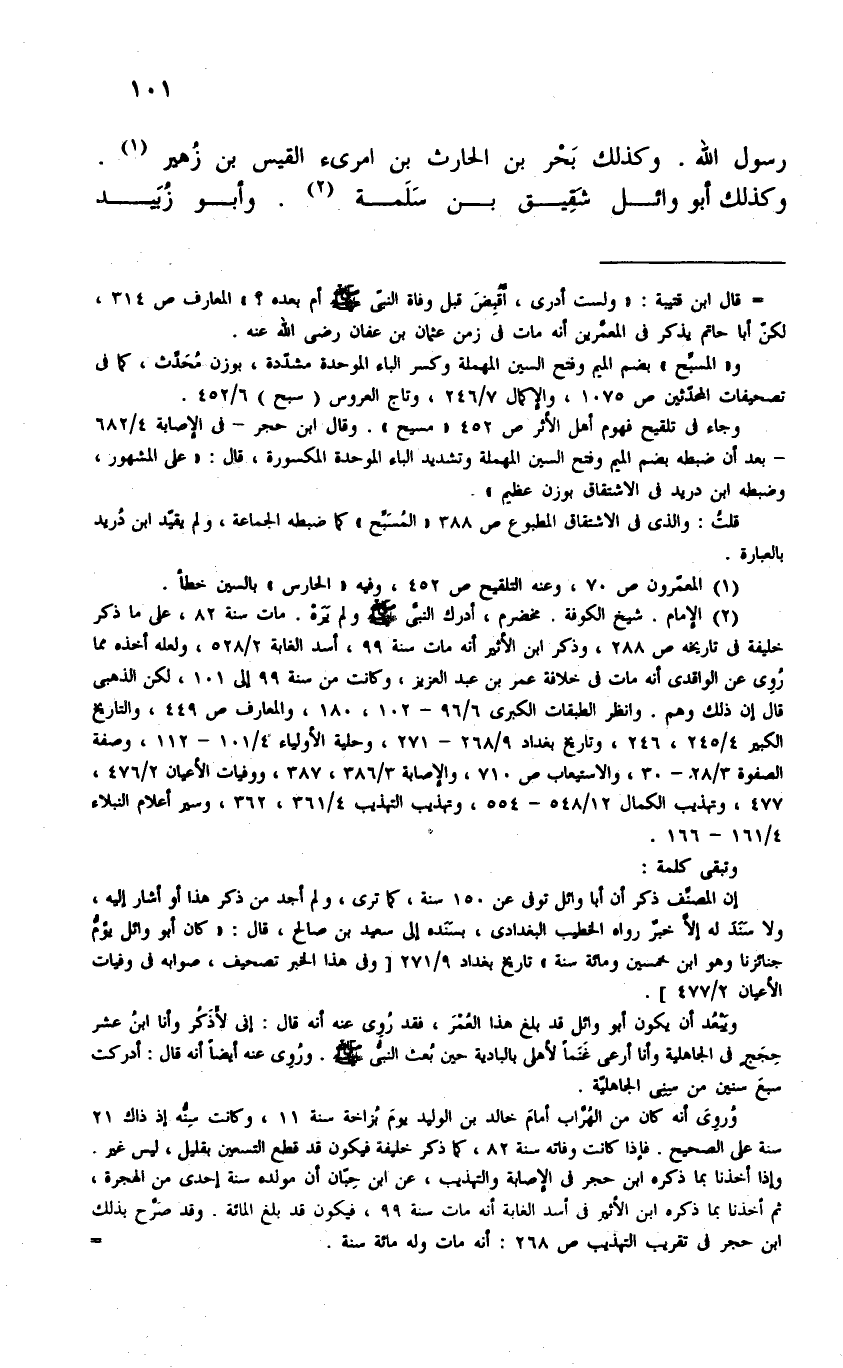 ١٠١
رسول الله . وكذلك بَحْر بن الحارث بن امرىء القيس بن زُهير (١) .
وكذلك أبو وائـــل شَقِيـــق بـــن سَلَمـــة (٢) . وأبـــو زُبَيـــد
= قال ابن قتيبة : « ولست أدرى ، أَقُبِضَ قبل وفاة النبىّ ﷺ أم بعده ؟ » المعارف ص ٣١٤ ،
لكنّ أبا حاتم يذكر فى المعمَّرين أنه مات فى زمن عثمان بن عفان رضى الله عنه .
و« المسبِّح » بضم الميم وفتح السين المهملة وكسر الباء الموحدة مشدّدة ، بوزن مُحَدِّث ، كما فى
تصحيفات المحدّثين ص ١٠٧٥ ، والإكمال ٢٤٦/٧ ، وتاج العروس ( سبح ) ٤٥٢/٦ .
وجاء فى تلقيح فهوم أهل الأثر ص ٤٥٢ « مسيح » . وقال ابن حجر – فى الإصابة ٦٨٢/٤
– بعد أن ضبطه بضم الميم وفتح السين المهملة وتشديد الباء الموحدة المكسورة ، قال : « على المشهور ،
وضبطه ابن دريد فى الاشتقاق بوزن عظيم » .
قلتُ : والذى فى الاشتقاق المطبوع ص ٣٨٨ « المُسَبِّح » كما ضبطه الجماعة ، ولم يقيّد ابن دُريد
بالعبارة .
(١) المعمّرون ص ٧٠ ، وعنه التلقيح ص ٤٥٢ ، وفيه « الحارس » بالسين خطأ .
(٢) الإمام . شيخ الكوفة . مخضرم ، أدرك النبىَّ ﷺ ولم يَرَهْ . مات سنة ٨٢ ، على ما ذكر
خليفة فى تاريخه ص ٢٨٨ ، وذكر ابن الأثير أنه مات سنة ٩٩ ، أسد الغابة ٥٢٨/٢ ، ولعله أخذه مما
رُوِى عن الواقدى أنه مات فى خلافة عمر بن عبد العزيز ، وكانت من سنة ٩٩ إلى ١٠١ ، لكن الذهبى
قال إن ذلك وهم . وانظر الطبقات الكبرى ٩٦/٦ – ١٠٢ ، ١٨٠ ، والمعارف ص ٤٤٩ ، والتاريخ
الكبير ٢٤٥/٤ ، ٢٤٦ ، وتاريخ بغداد ٢٦٨/٩ – ٢٧١ ، وحلية الأولياء ١٠١/٤ – ١١٢ ، وصفة
الصفوة ٢٨/٣ – ٣٠ ، والاستيعاب ص ٧١٠ ، والإصابة ٣٨٦/٣ ، ٣٨٧ ، ووفيات الأعيان ٤٧٦/٢ ،
٤٧٧ ، وتهذيب الكمال ٥٤٨/١٢ – ٥٥٤ ، وتهذيب التهذيب ٣٦١/٤ ، ٣٦٢ ، وسير أعلام النبلاء
١٦١/٤ – ١٦٦ .
وتبقى كلمة :
إن المصنِّف ذكر أن أبا وائل توفى عن ١٥٠ سنة ، كما ترى ، ولم أجد من ذكر هذا أو أشار إليه ،
ولا سَنَدَ له إلاَّ خبرٌ رواه الخطيب البغدادى ، بسنَده إلى سعيد بن صالح ، قال : « كان أبو وائل يؤمُّ
جنائزنا وهو ابن خمسين ومائة سنة » تاريخ بغداد ٢٧١/٩ [ وفى هذا الخبر تصحيف ، صوابه فى وفيات
الأعيان ٤٧٧/٢ ] .
ويَبْعُد أن يكون أبو وائل قد بلغ هذا العُمْرَ ، فقد رُوِى عنه أنه قال : إنى لأَذكُر وأنا ابنُ عشر
حِجَجٍ فى الجاهلية وأنا أرعى غَنَماً لأهلى بالبادية حين بُعث النبىُّ ﷺ . ورُوِى عنه أيضاً أنه قال : أدركت
سبعَ سنين من سِنِى الجاهليّة .
ورُوِىَ أنه كان من الهُرَّاب أمامَ خالد بن الوليد يومَ بُزاخة سنة ١١ ، وكانت سِنُّه إذ ذاك ٢١
سنة على الصحيح . فإذا كانت وفاته سنة ٨٢ ، كما ذكر خليفة فيكون قد قطع التسعين بقليل ، ليس غير .
وإذا أخذنا بما ذكره ابن حجر فى الإصابة والتهذيب ، عن ابن حِبّان أن مولده سنة إحدى من الهجرة ،
ثم أخذنا بما ذكره ابن الأثير فى أسد الغابة أنه مات سنة ٩٩ ، فيكون قد بلغ المائة . وقد صَرَّح بذلك
ابن حجر فى تقريب التهذيب ص ٢٦٨ : أنه مات وله مائة سنة . =